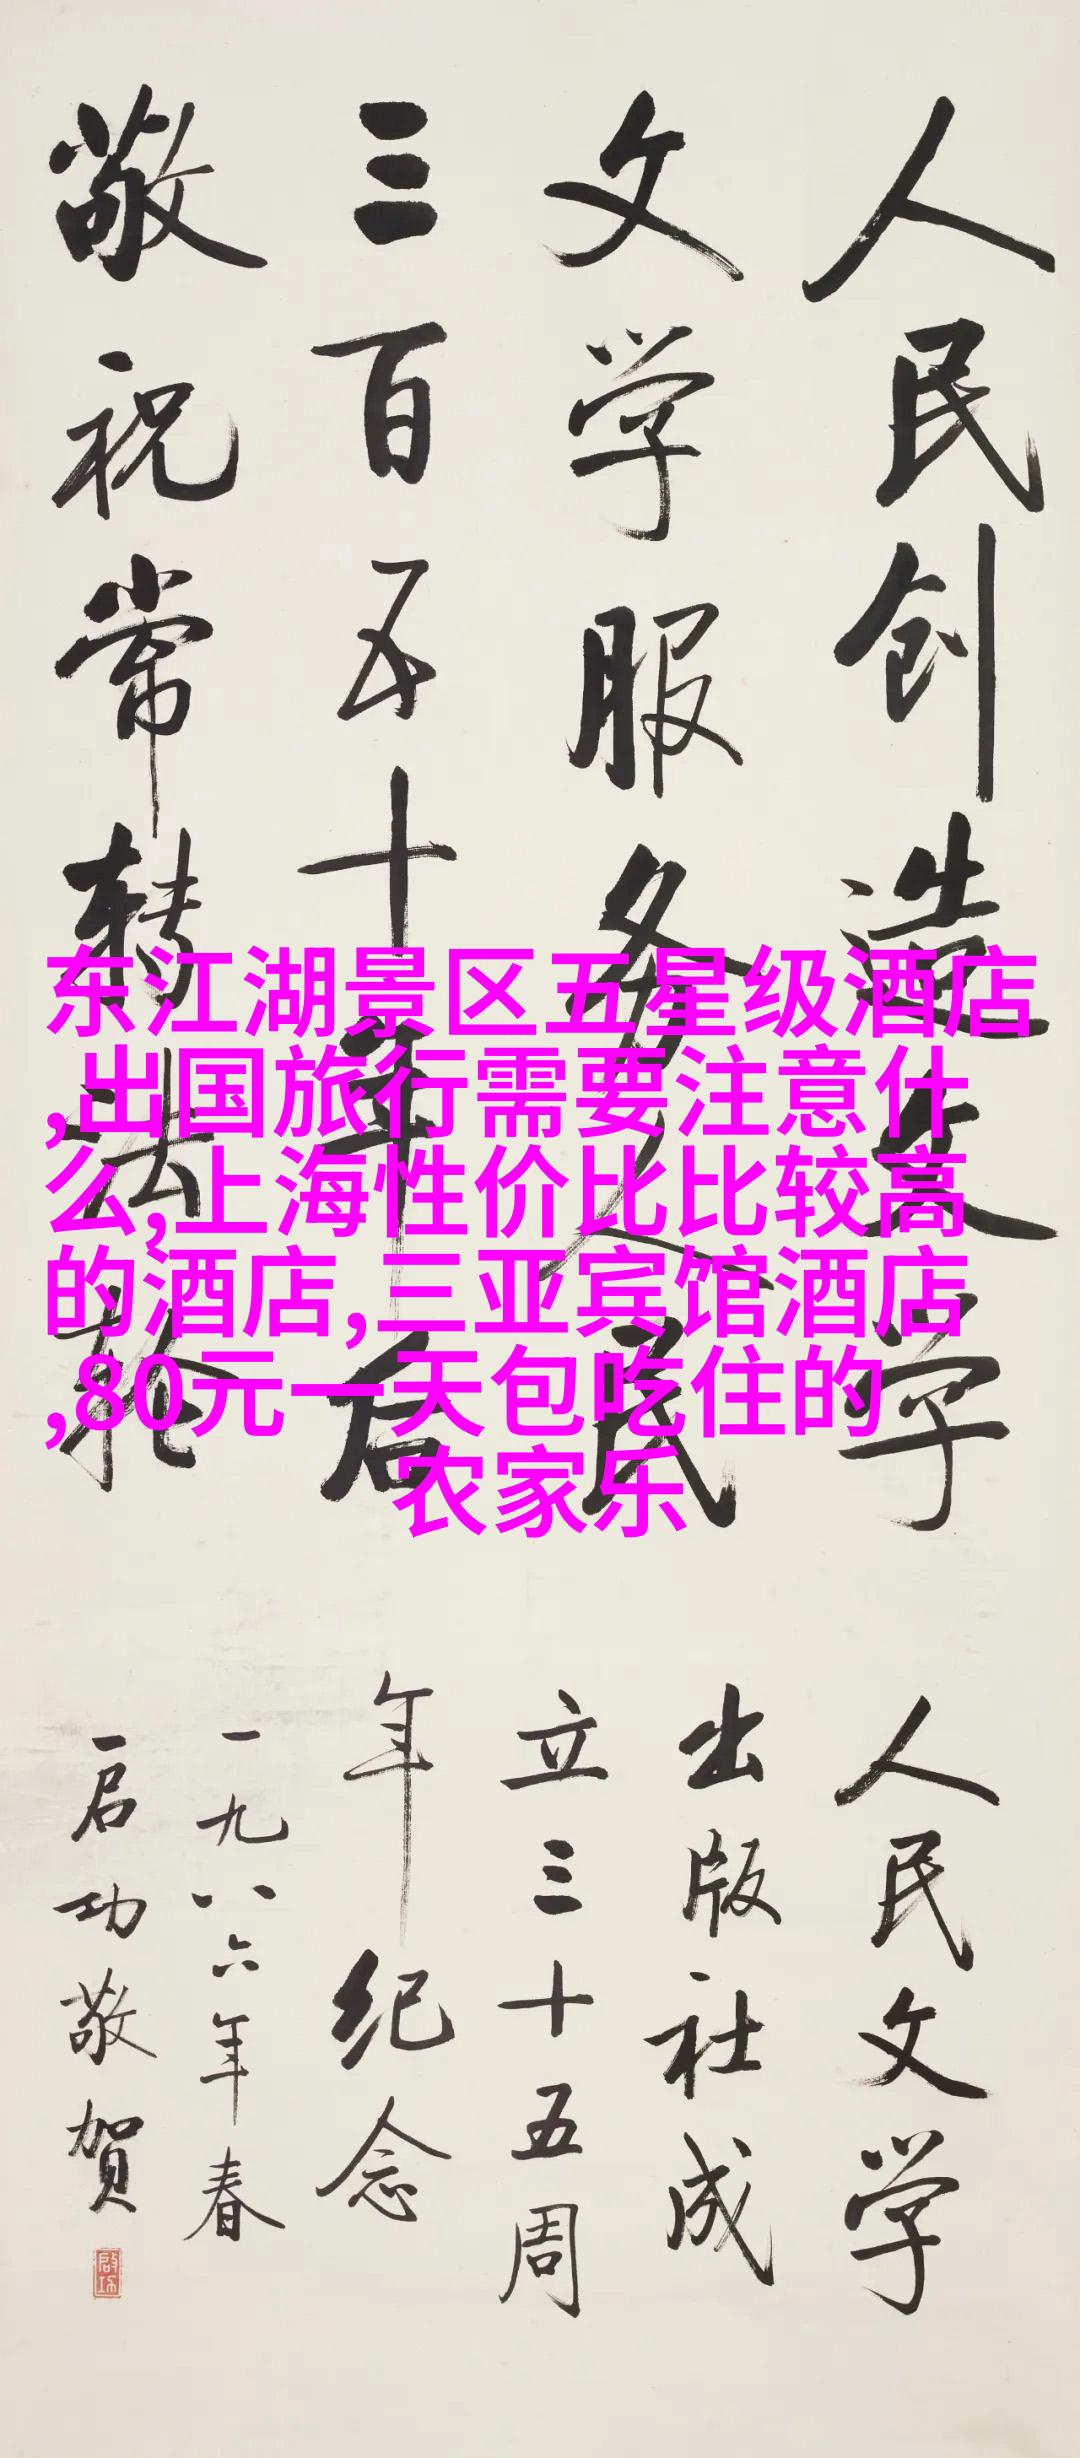 人民创造文学
文学服务人民
三百五十年后
敬祝常转法轮
东江湖景区五星级酒店
,出国旅行需要注意什
么,上海性价比比较高
的酒店,三亚宾馆酒店
,80元一天包吃住的
农家乐
人民文学
出版社成
立三十五周
年纪念
一九八六年春
启功敬贺
启功